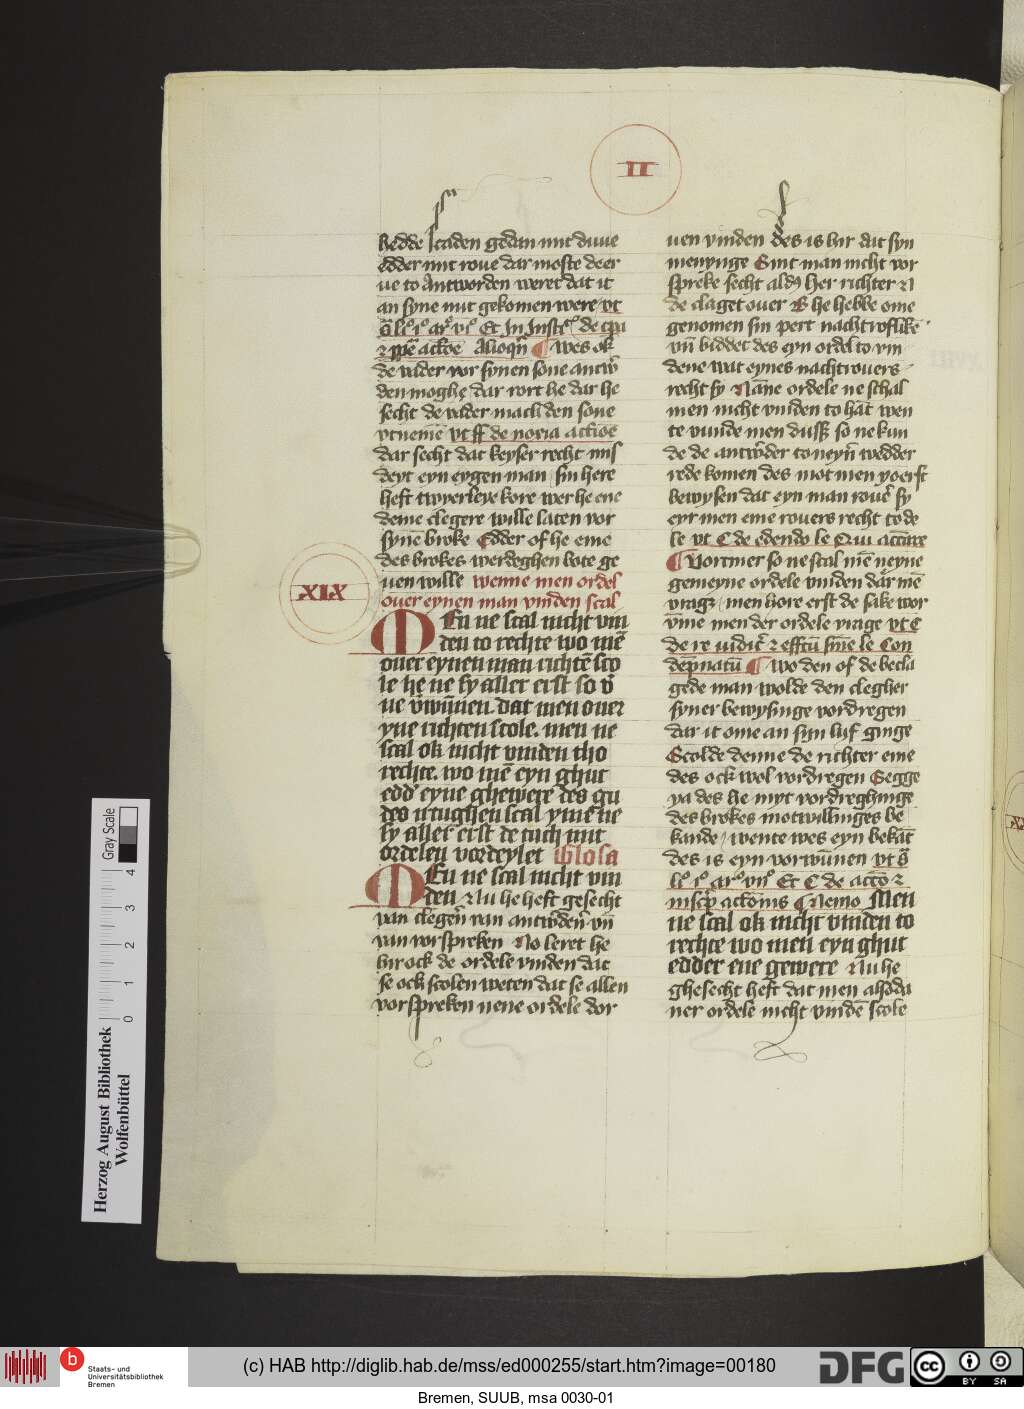 II
hedde scaden gedan mit duue
edder mit roue dar moste he er
ue to antworden weret dat it
an syne nut gekomen were vt
de vader vor synen sone antw̄
den moghe dar wort he dar he
secht de vader mach den sone
vtnemē vt ff de noxia actiōe
dar secht dat keyser recht mis
deyt eyn eygen man sin here
heft twyerleye kore wer he ene
deme clegere wille laten vor
syne broke Edder of he eme
des brokes werdeghen bote ge
uen wille wenne men ordel
ouer eynen man vinden scal
XIX
MEn ne scal nicht vin
den to rechte wo mē
ouer eynen man richtē sco
le he ne sy aller erst so v̄
ne v̄wunnen. dat men ouer
yne richten scole. men ne
scal ok nicht vinden tho
rechte. wo mē eyn ghut
edd' eyne ghewere des gu
des utughen scal yme ne
sy aller erst de tuch mit
ordelen vordeylet Glosa
MEn ne scal nicht vin
den Nu he heft gesecht
van clegerē van antwōdērē vn̄
van vorspreken No leret he
hir ock de ordele vinden dat
se ock scolen weten dat se allen
vorspreken nene ordele dor
uen vinden des is hir dat syn
menynge Sint man nicht vor
spreke secht aldus her richter N
de claget ouer B he hebbe eme
genomen sin pert nachtroflikē
vn̄ biddet des eyn ordel to vin
dene wat eynes nachtrouers
recht sy Nāne ordele ne schal
men nicht vinden to hāt wen
te vunde men dusse so ne kun
de de antw̄der to neyn̄ wedder
rede komen des mot men yo erst
bewysen dat eyn man rouer sy
eyr men eme rouers recht to de
le vt C de edendo le Qui accūare
Vortmer so ne scal mē neyne
gemeyne ordele vinden dar mē
vragz men hore erst de sake wor
vme men der ordele vrage vt C
de re iudic̄ et effctū sniē le Con
depnatū wo den of de becla
gede man wolde den clegher
syner bewysinge vordregen
dar it ome an syn lyf ginge
Scolde denne de richter eme
des ock wol vordregen Segge
ya des he myt vordreghinge
des brokes motwillinges be
kande wente wes eyn bekāt
des is eyn vorwunen vt
Nemo Men
ne scal ok nicht vinden to
rechte wo men eyn ghut
edder ene gewere Nu he
ghesecht heft dat men alsoda
ner ordele nicht vindē scole
Herzog August Bibliothek
Wolfenbüttel
Gray Scale
0 1 2 3 4
b
Staats- und
Universitätsbibliothek
Bremen
(c) HAB http://diglib.hab.de/mss/ed000255/start.htm?image=00180
DFG
cc BY SA
Bremen, SUUB, msa 0030-01